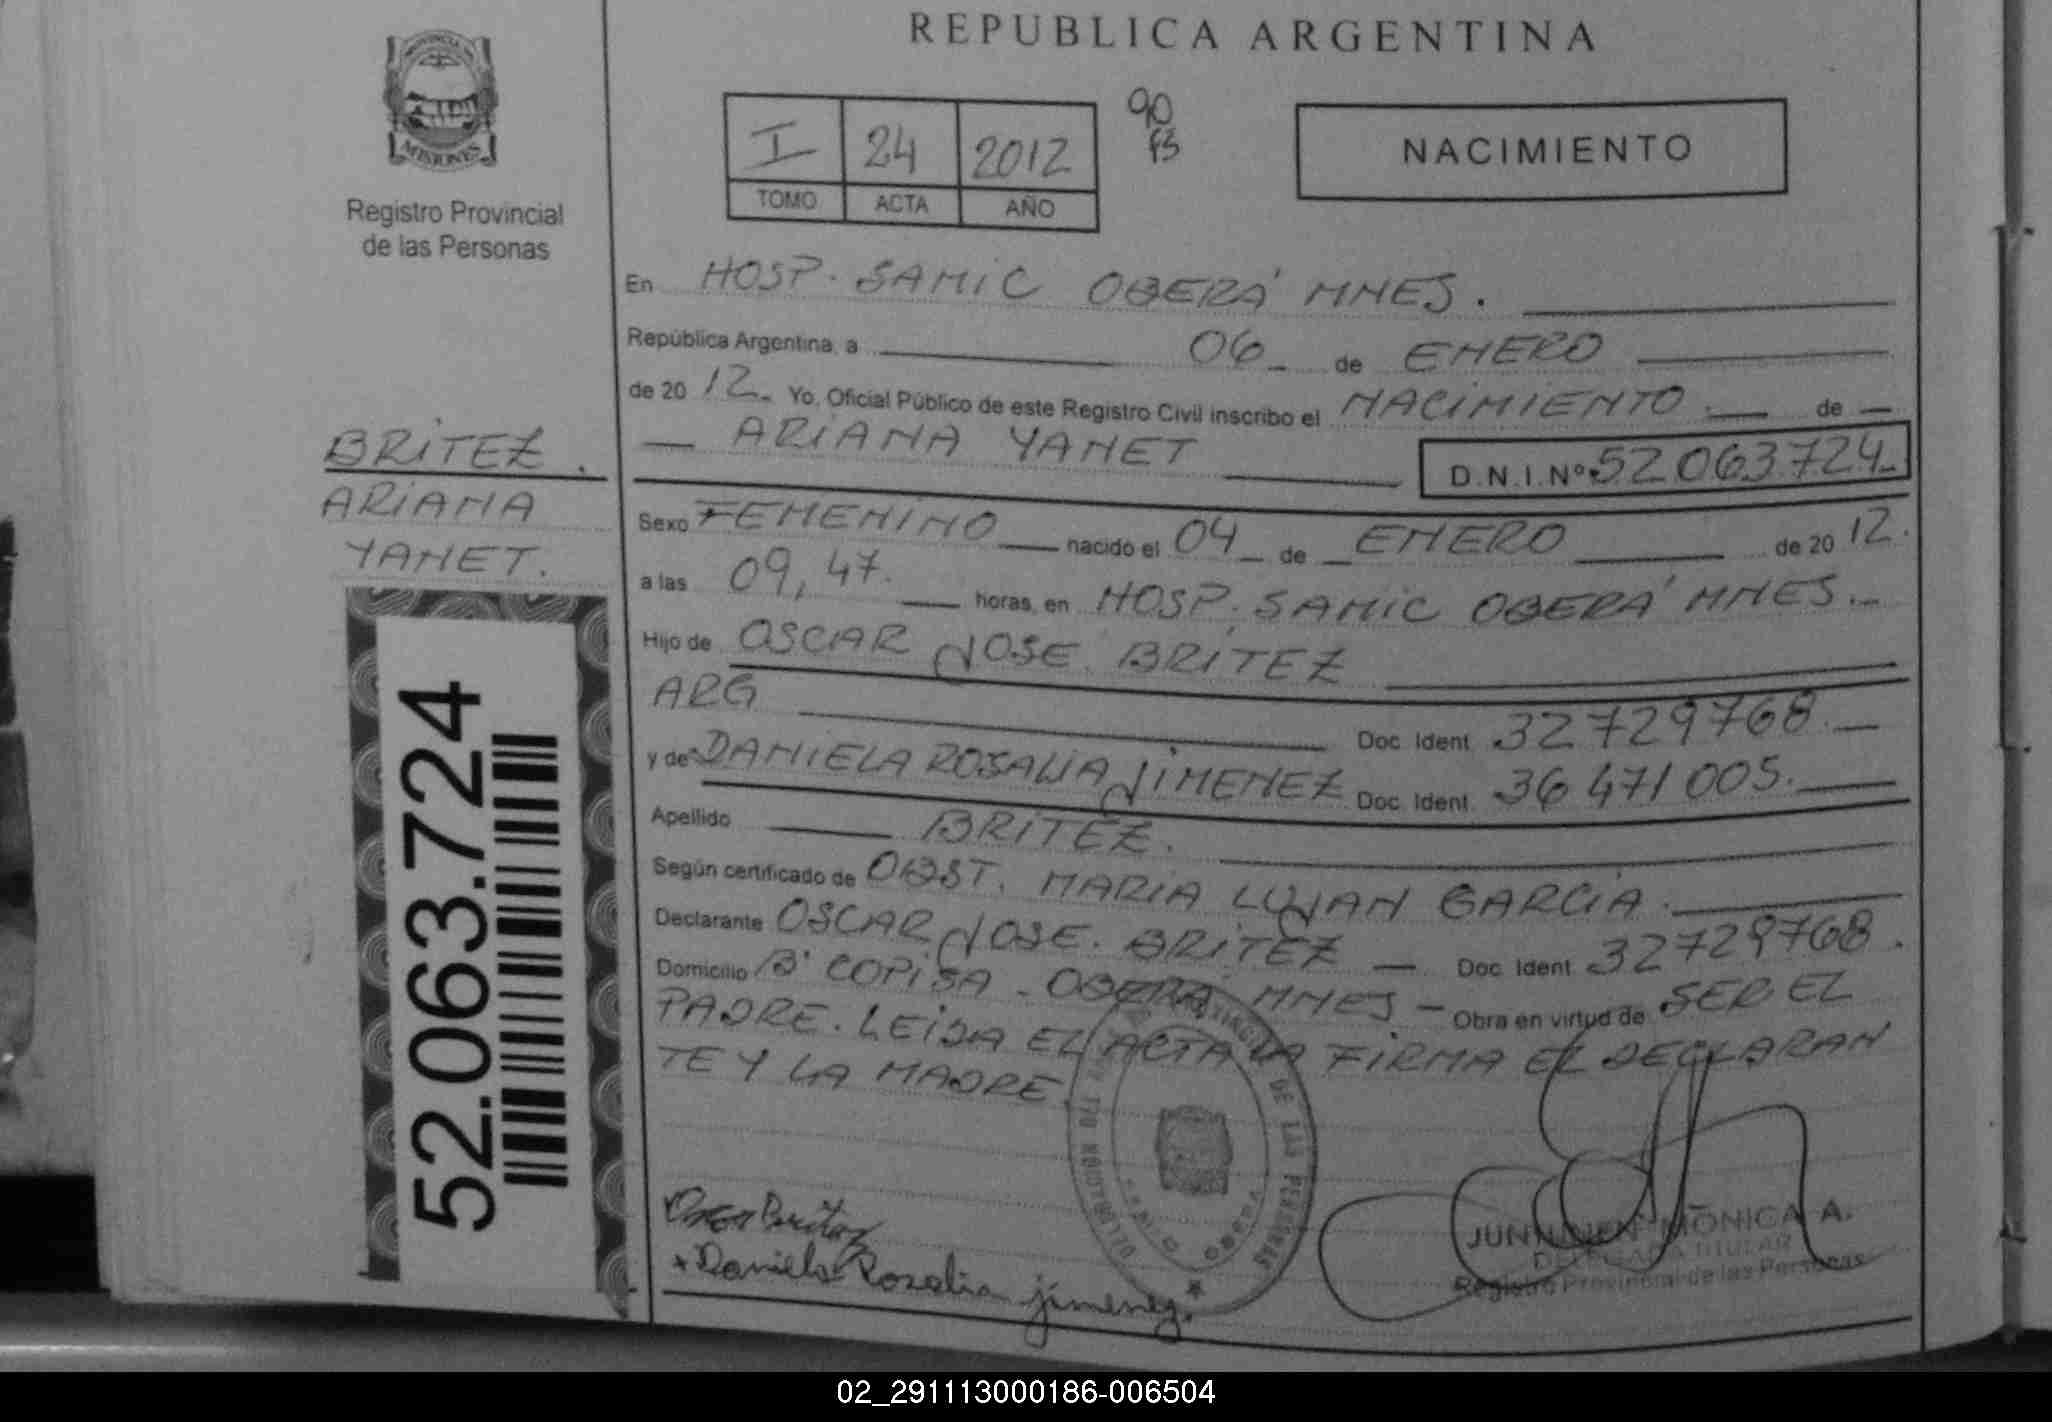 REPUBLICA ARGENTINA
PROVINCIA DE
MISIONES
Registro Provincial
de las Personas
I 24 2012
TOMO ACTA AÑO
90
FS
NACIMIENTO
En HOSP. SAMIC OBERÁ MNES.
República Argentina, a 06 de ENERO
de 20 12. Yo, Oficial Público de este Registro Civil inscribo el NACIMIENTO de
ARIANA YANET D.N.I.Nº 52063724
BRITEZ.
ARIANA
YANET.
Sexo FEMENINO nacido el 04 de ENERO de 20 12.
a las 09,47. horas, en HOSP. SAMIC OBERÁ MNES.
Hijo de OSCAR JOSE BRITEZ
ARG Doc. Ident. 32729768.
y de DANIELA ROSALIA JIMENEZ Doc. Ident. 36471005.
Apellido BRITEZ.
Según certificado de OBST. MARIA LUJAN GARCIA.
Declarante OSCAR JOSE. BRITEZ Doc. Ident. 32729768.
Domicilio Bº COPISA - OBERA MNES - Obra en virtud de SER EL
PADRE. LEIDA EL ACTA LA FIRMA EL DECLARAN
TE Y LA MADRE.
52.063.724
DE LAS PERSONAS
OBERA
Oscar Britez
x Daniela Rosalia jimenez.
MONICA A.
DELEGADA TITULAR
Registro Provincial de las Personas
02_291113000186-006504